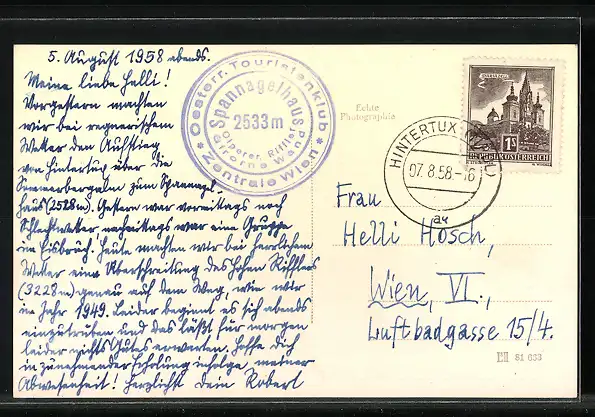 5. August 1958 abends.
Meine liebe Helli!
Vorgestern machten
wir bei regnerischem
Wetter den Aufstieg
von Hintertux über die
Sommerbergalm zum Spannagel-
haus (2528m). Gestern war vormittags noch
Schlechtwetter nachmittags war eine Gruppe
im Eisbruch. Heute machten wir bei herrlichem
Wetter eine Überschreitung des Hohen Rifflers
(3228m) genau auf dem Weg, wie wir
im Jahr 1949. Leider beginnt es sich abends
einzutrüben und das läßt für morgen
leider nichts Gutes erwarten. Hoffe dich
in zunehmender Erholung infolge meiner
Abwesenheit! Herzlichst Dein Robert
Oesterr. Touristenklub
Zentrale Wien
Spannagelhaus
2533m
Olperer, Riffler
Gfrorne Wand
Echte
Photographie
HINTERTUX
07.8.58-16
MARIAZELL
1S
REPUBLIK ÖSTERREICH
Frau
Helli Hosch,
Wien, VI.,
Luftbadgasse 15/4.
81 663